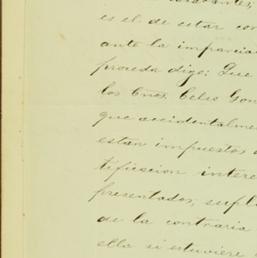 es el de estar con
ante la imparcia
proceda digo: Que
los Cnos. Celso Gon
que accidentalme
estan impuestos
tificacion intere
presentados, supli
de la contraria
ella si estuviere